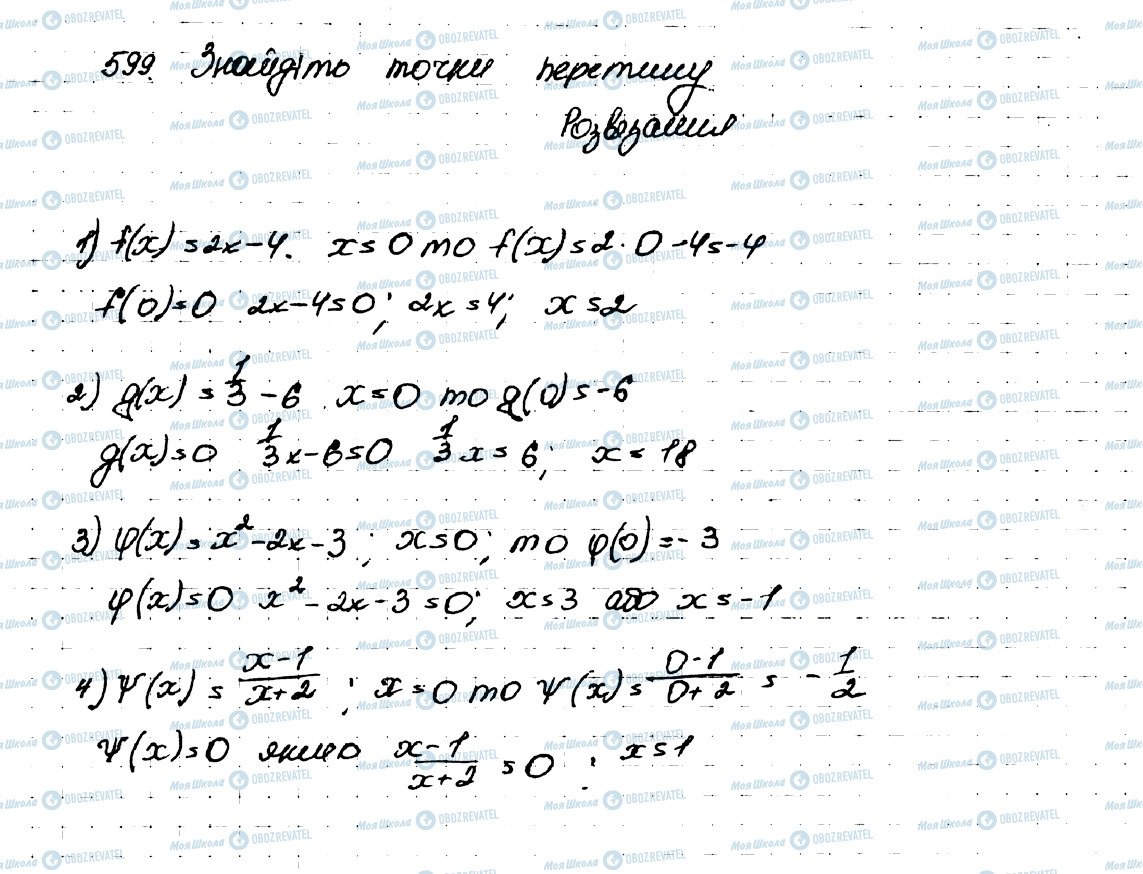 599 Знайдіто точки перетину
Розвезання
1) f(x) = 2x - 4. x = 0 то f(x) = 2 · 0 - 4 = -4
f(0) = 0 2x - 4 = 0; 2x = 4; x = 2
2) g(x) = 1/3 - 6 x = 0 то g(0) = -6
g(x) = 0 1/3 x - 6 = 0 1/3 x = 6; x = 18
3) φ(x) = x² - 2x - 3; x = 0; то φ(0) = -3
φ(x) = 0 x² - 2x - 3 = 0; x = 3 або x = -1
4) ψ(x) = x-1/x+2; x = 0 то ψ(x) = 0-1/0+2 = -1/2
ψ(x) = 0 якщо x-1/x+2 = 0. x = 1